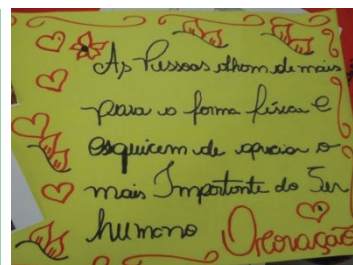 As Pessoas olham de mais
para a forma física e
esquicem de apreciar o
mais Importante do Ser
humano O coração